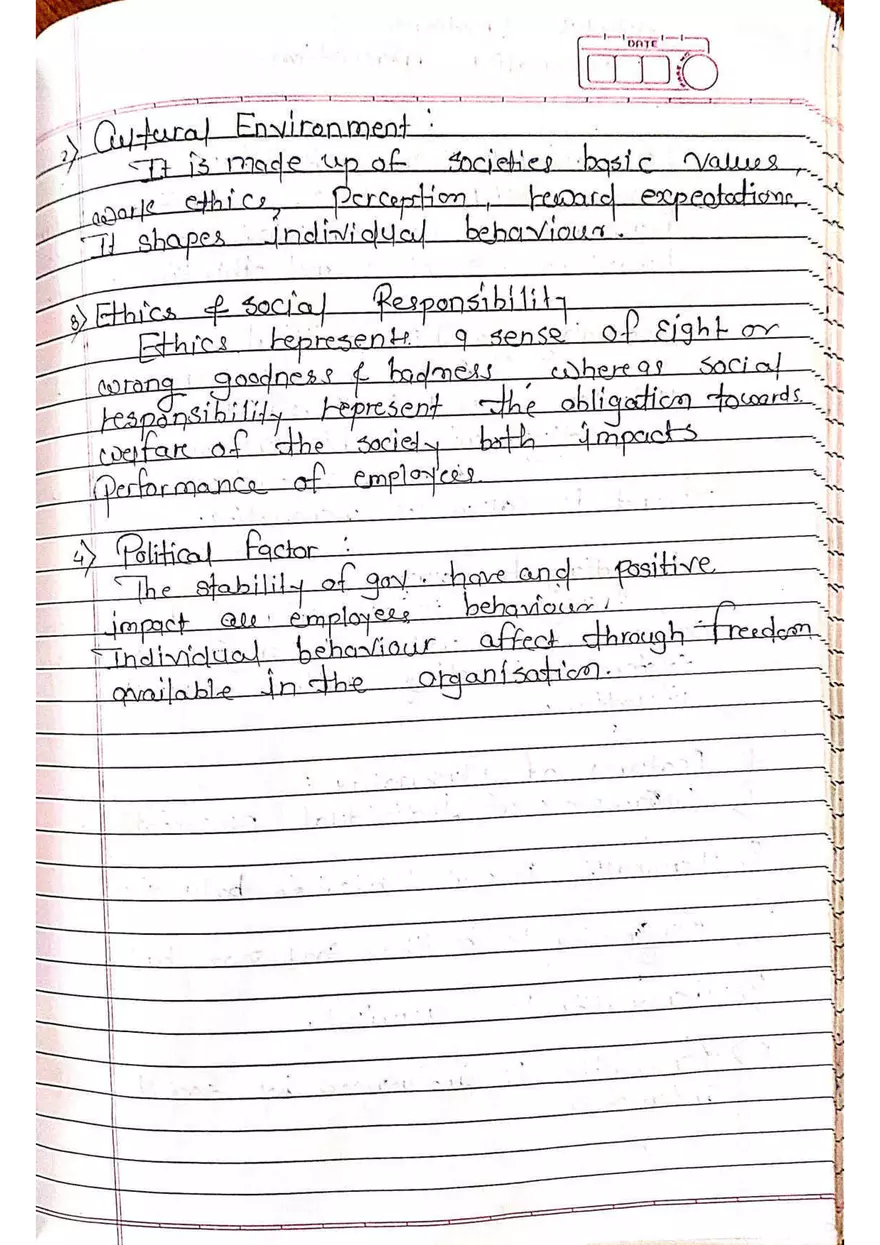 DATE
2) Cultural Environment :
It is made up of societies basic values,
work ethics, Perception, reward expectations.
It shapes individual behaviour.
3) Ethics & social Responsibility
Ethics represents a sense of right or
wrong goodness & badness, whereas social
responsibility represent the obligation towards
welfare of the society both impacts
performance of employees
4) Political factor :
The stability of gov. have and positive
impact all employees behaviour.
Individual behaviour affect through freedom
available in the organisation.